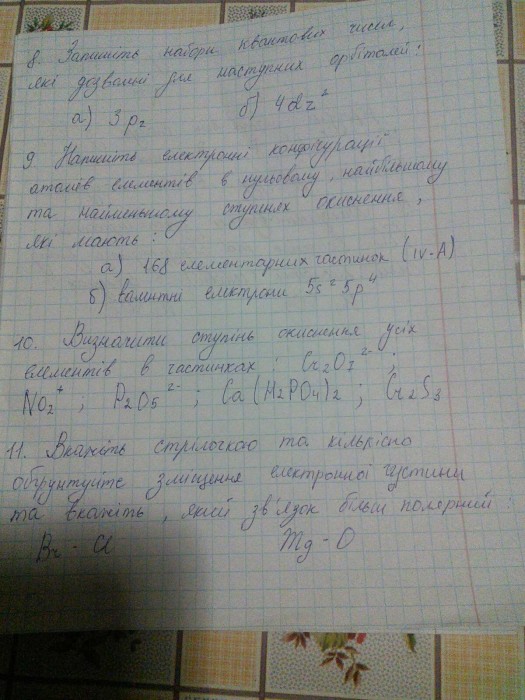 8. Запишіть набори квантових чисел,
які дозволені для наступних орбіталей:
а) 3pz б) 4dz²
9 Напишіть електронні конфігурації
атомів елементів в нульовому, найбільшому
та найменьшому ступнях окиснення,
які мають:
а) 168 елементарних частинок (IV-A)
б) валентні електрони 5s² 5p⁴
10. Визначити ступінь окиснення усіх
елементів в частинках: Cr2O7²⁻;
NO2⁺; P2O5²⁻; Ca(H2PO4)2; Cr2S3
11. Вкажіть стрілочкою та кількісно
обгрунтуйте зміщення електронної густини
та вкажіть, який зв'язок більш полярний
Br - Cl Mg - O